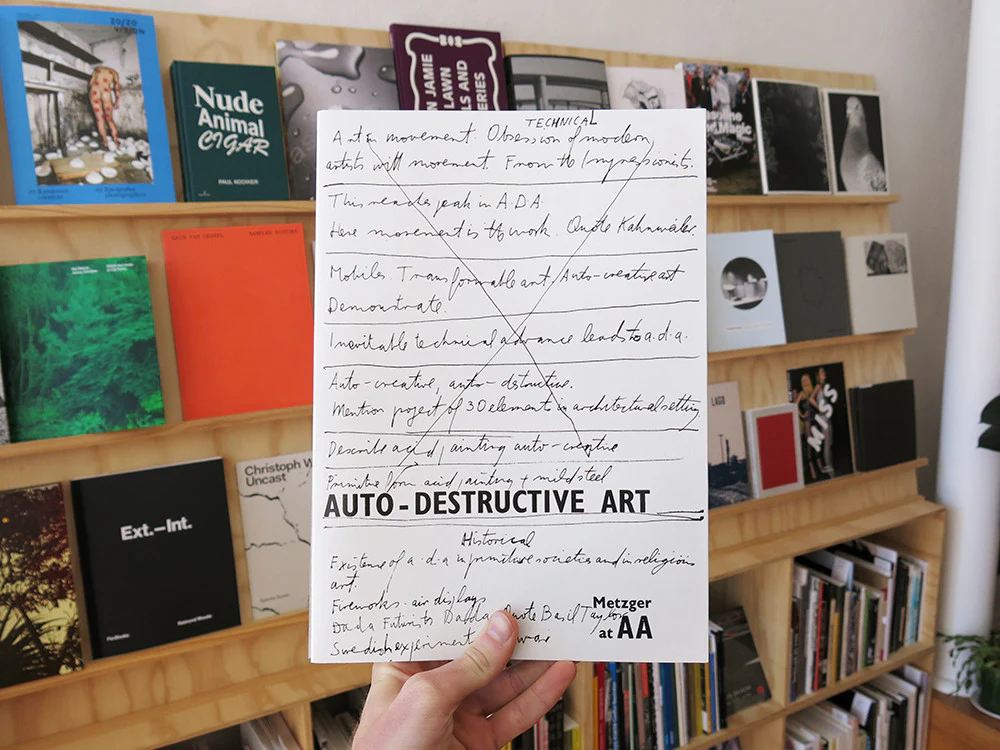 20/20
VISION
Nude
Animal
CIGAR
PAUL KOOIKER
N JAMIE
LAWN
LS AND
ERIES
asoline
Magic
TECHNICAL
Art in movement Obsession of modern
artists with movement. From the Impressionists.
This reaches peak in A.D.A.
Here movement is the work. Quote Kahnweiler.
Mobiles. Transformable art. Auto-creative art
Demonstrate.
Inevitable technical advance leads to a.d.a.
Auto-creative, auto-dstructive.
Mention project of 30 elements in architectural setting
Describe acid painting auto-creative
Primitive form acid painting + mild steel
AUTO-DESTRUCTIVE ART
Historical
Existence of a.d.a in primitive societies and in religious
art.
Fireworks. air displays
Dada Futurists Dadda Quote Basil Taylor
Swedish experiment war
Metzger
at AA
LAGO
MISS
Ext.—Int.
Christoph W
Uncast